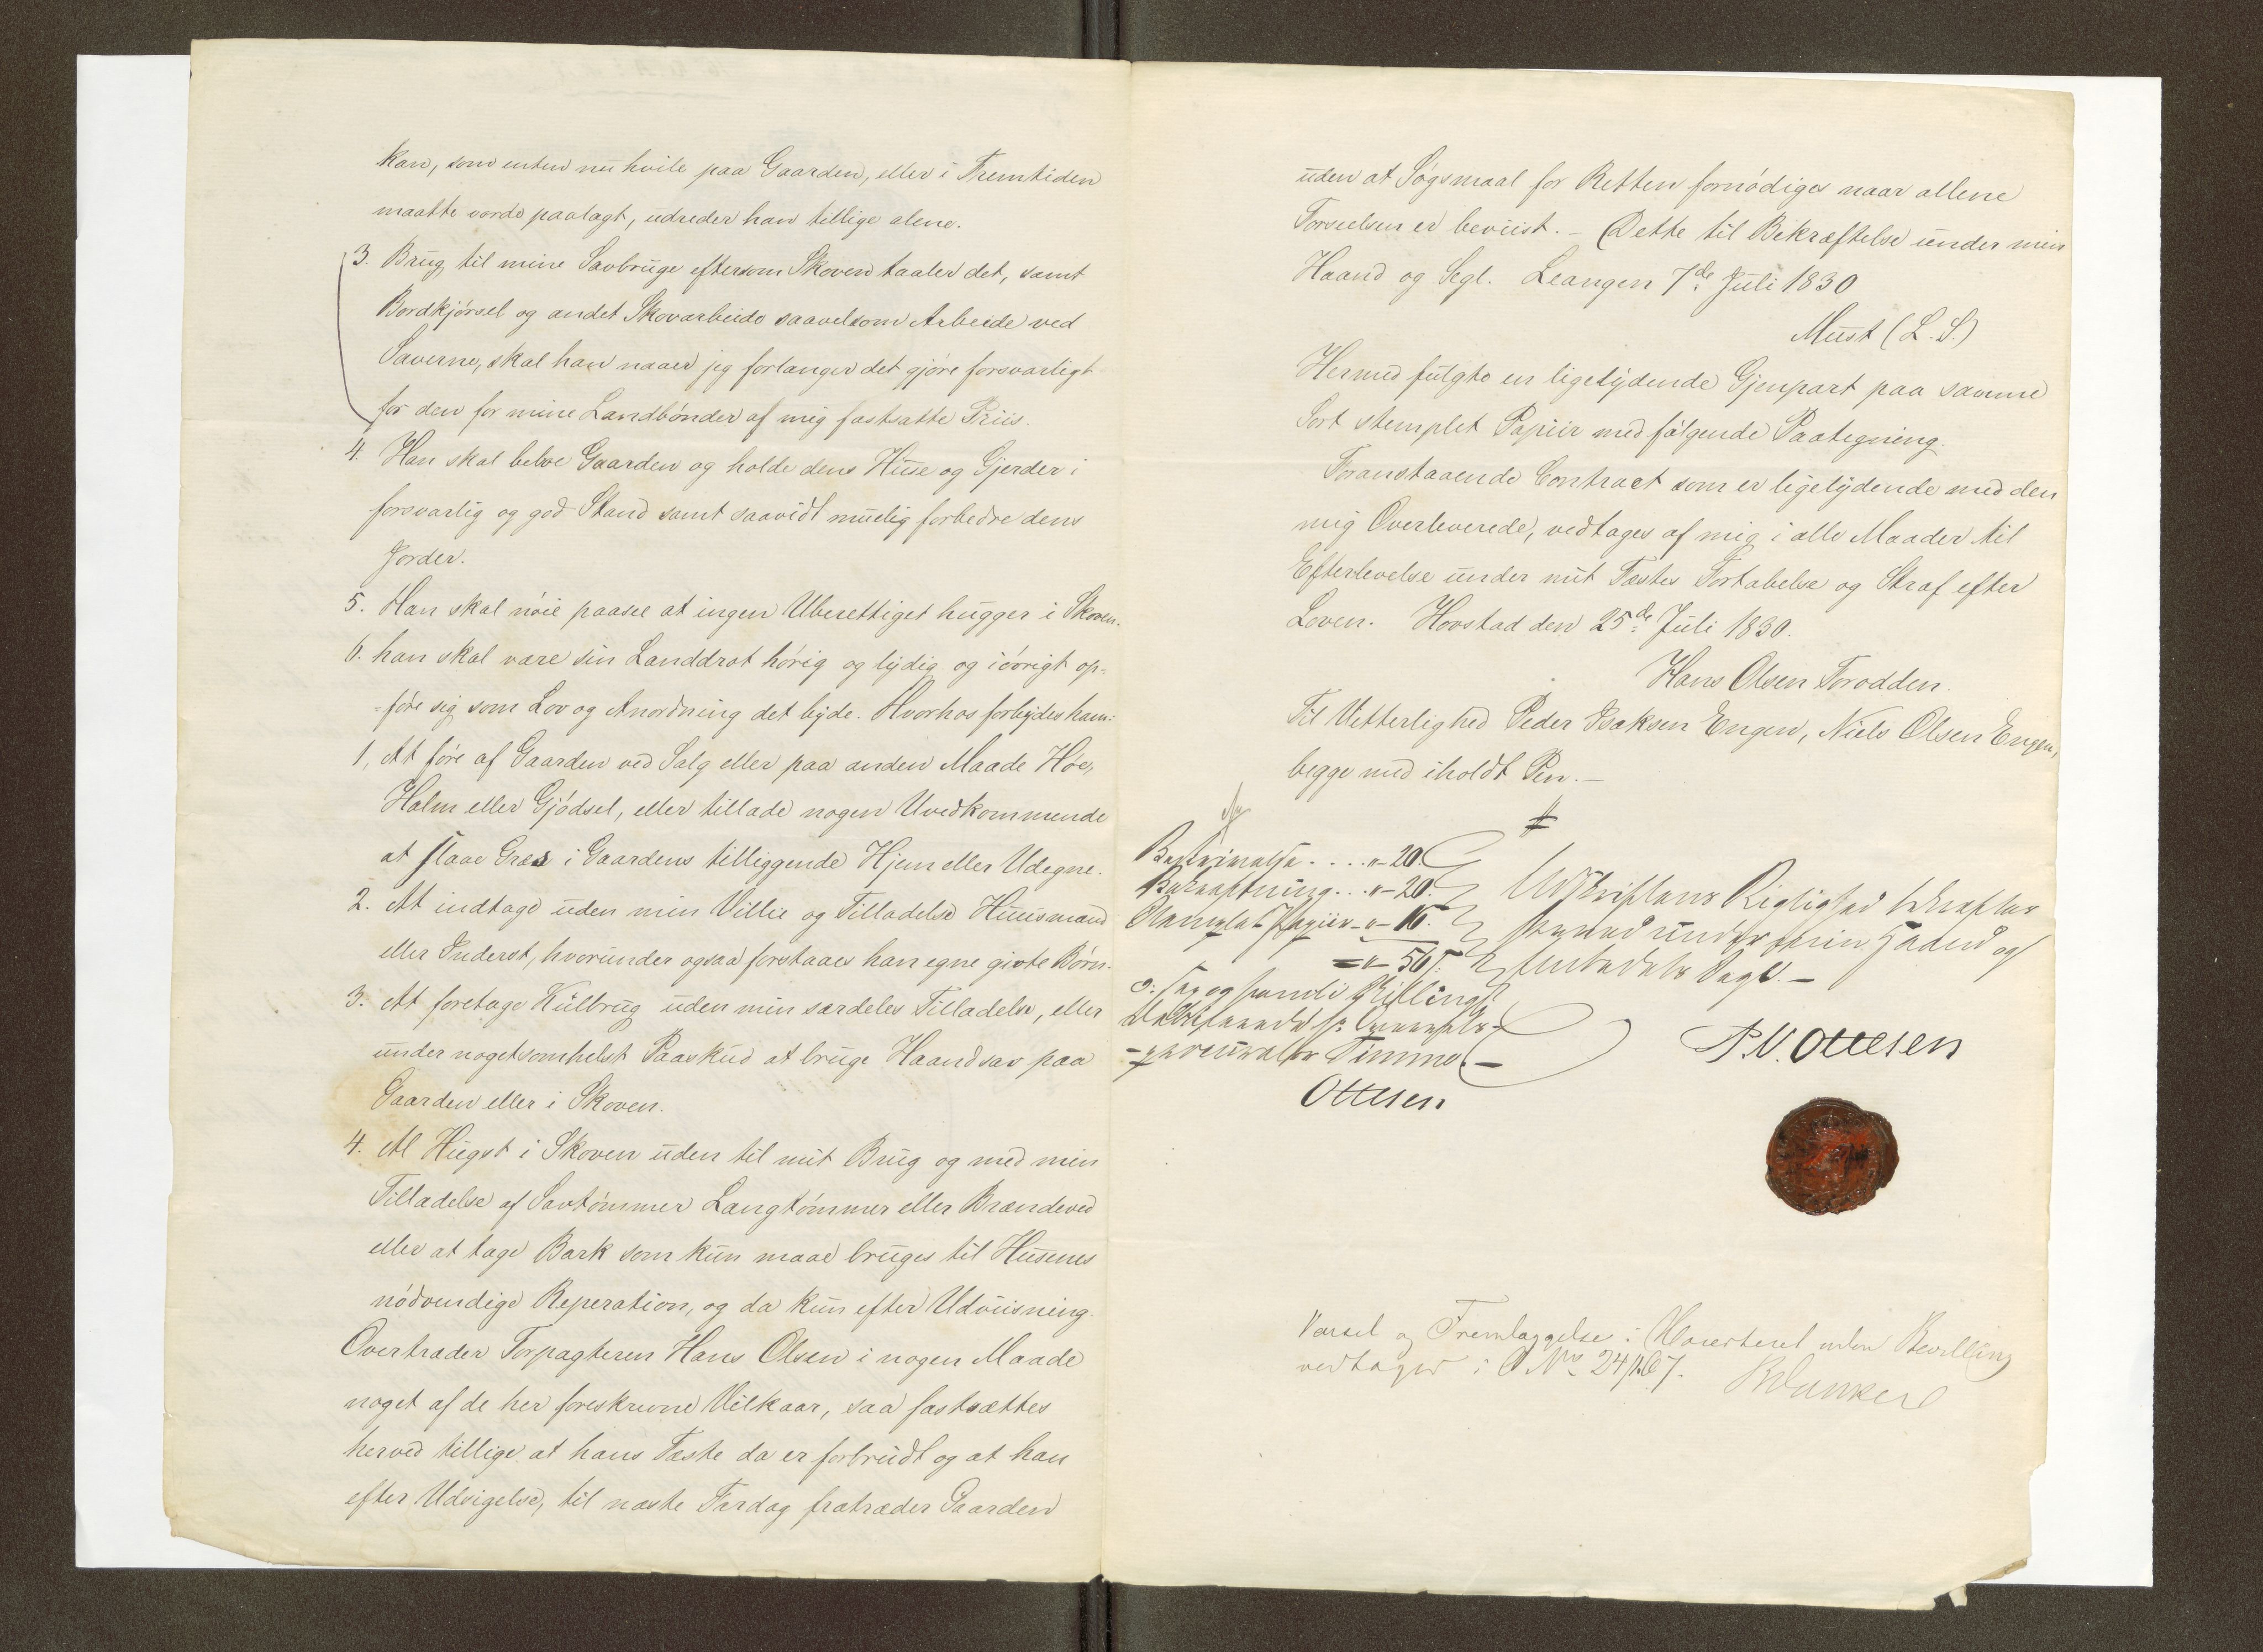 kan, som enten nu hvile paa Gaarden, eller i Fremtiden
maatte vorde paalagt, udreder han tillige alene.
3. Brug til mine Savbruge eftersom Skoven taaler det, samt
Bordkjørsel og andet Skovarbeide saavelsom Arbeide ved
Saverne, skal han naar jeg forlanger det gjøre forsvarligt
for den for mine Landbønder af mig fastsatte Priis.
4. Han skal beboe Gaarden og holde dens Huse og Gjerder i
forsvarlig og god Stand samt saavidt muelig forbedre dens
Jorder.
5. Han skal nøie paasee at ingen Uberettiget hugger i Skoven.
6. han skal være sin Landdrot hørig og lydig og iøvrigt op-
=føre sig som Lov og Anordning det byde. Hvorhos forbydes ham:
1, At føre af Gaarden ved Salg eller paa anden Maade Høe,
Halm eller Gjødsel, eller tillade nogen Uvedkommende
at slaae Græs i Gaardens tilliggende Hjem eller Udegne.
2. At indtage uden min Villie og Tilladelse Huusmand
eller Inderst, hvorunder ogsaa forstaaes han egne givte Børn.
3. At foretage Kulbrug uden min særdeles Tilladelse, eller
under nogetsomhelst Paaskud at bruge Haandsav paa
Gaarden eller i Skoven.
4. Al Hugst i Skoven uden til mit Brug og med min
Tilladelse af Savtømmer Langtømmer eller Brændeved
eller at tage Bark som kun maae bruges til Husenes
nødvendige Reperation, og da kun efter Udviisning.
Overtræder Forpagteren Hans Olsen i nogen Maade
noget af de her foreskrevne Vilkaar, saa fastsættes
herved tillige at hans Fæste da er forbrudt og at han
efter Udsigelse, til næste Fardag fratræder Gaarden
uden at Søgsmaal for Retten fornødiges naar allene
Forseelsen er beviist. – Dette til Bekræftelse under min
Haand og Segl. Leangen 7de Juli 1830
Must (L. S.)
Hermed fulgte en ligelydende Gjenpart paa samme
Sort stemplet Papiir med følgende Paategning.
Foranstaaende Contract som er ligelydende med den
mig Overleverede, vedtages af mig i alle Maader til
Efterlevelse under mit Fæstes Fortabelse og Straf efter
Loven. Hovstad den 25de Juli 1830.
Hans Olsen Forodden.
Til Vitterlighed Peder Isaksen Engen, Niels Olsen Engen,
begge med iholdt Pen. –
Beskrivelse .... "– 20.
Bekræftning ... "– 20.
Stemplet Papiir – "– 16.
= "– 56 s.
Udskriftens Rigtighed bekræftes
herved under min Haand og
Embedets Segl. –
Skilling
Ottesen
P.V. Ottesen
Varsel og Fremlæggelse i uden Bevilling
vedtages